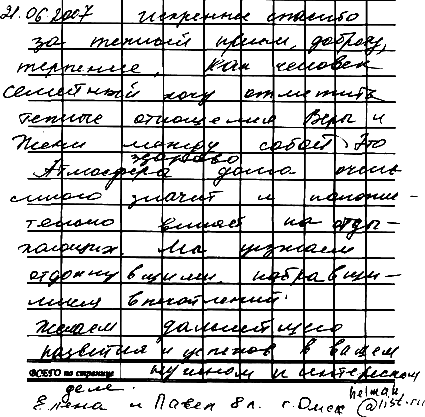 21.06.2007 Искреннее спасибо
за теплый прием, доброту,
терпение, как человек
семейный хочу отметить
теплые отношения Веры и
Жени между собой. Это
здорово
Атмосфера дома очень
много значит и положи-
тельно влияет на отды-
хающих. Мы уезжаем
отдохнувшими, набравши-
мися впечатлений.
Желаем дальнейшего
развития и успехов в вашем
ВСЕГО по странице нужном и интересном
деле.
Елена и Павел г. Омск
@list.ru